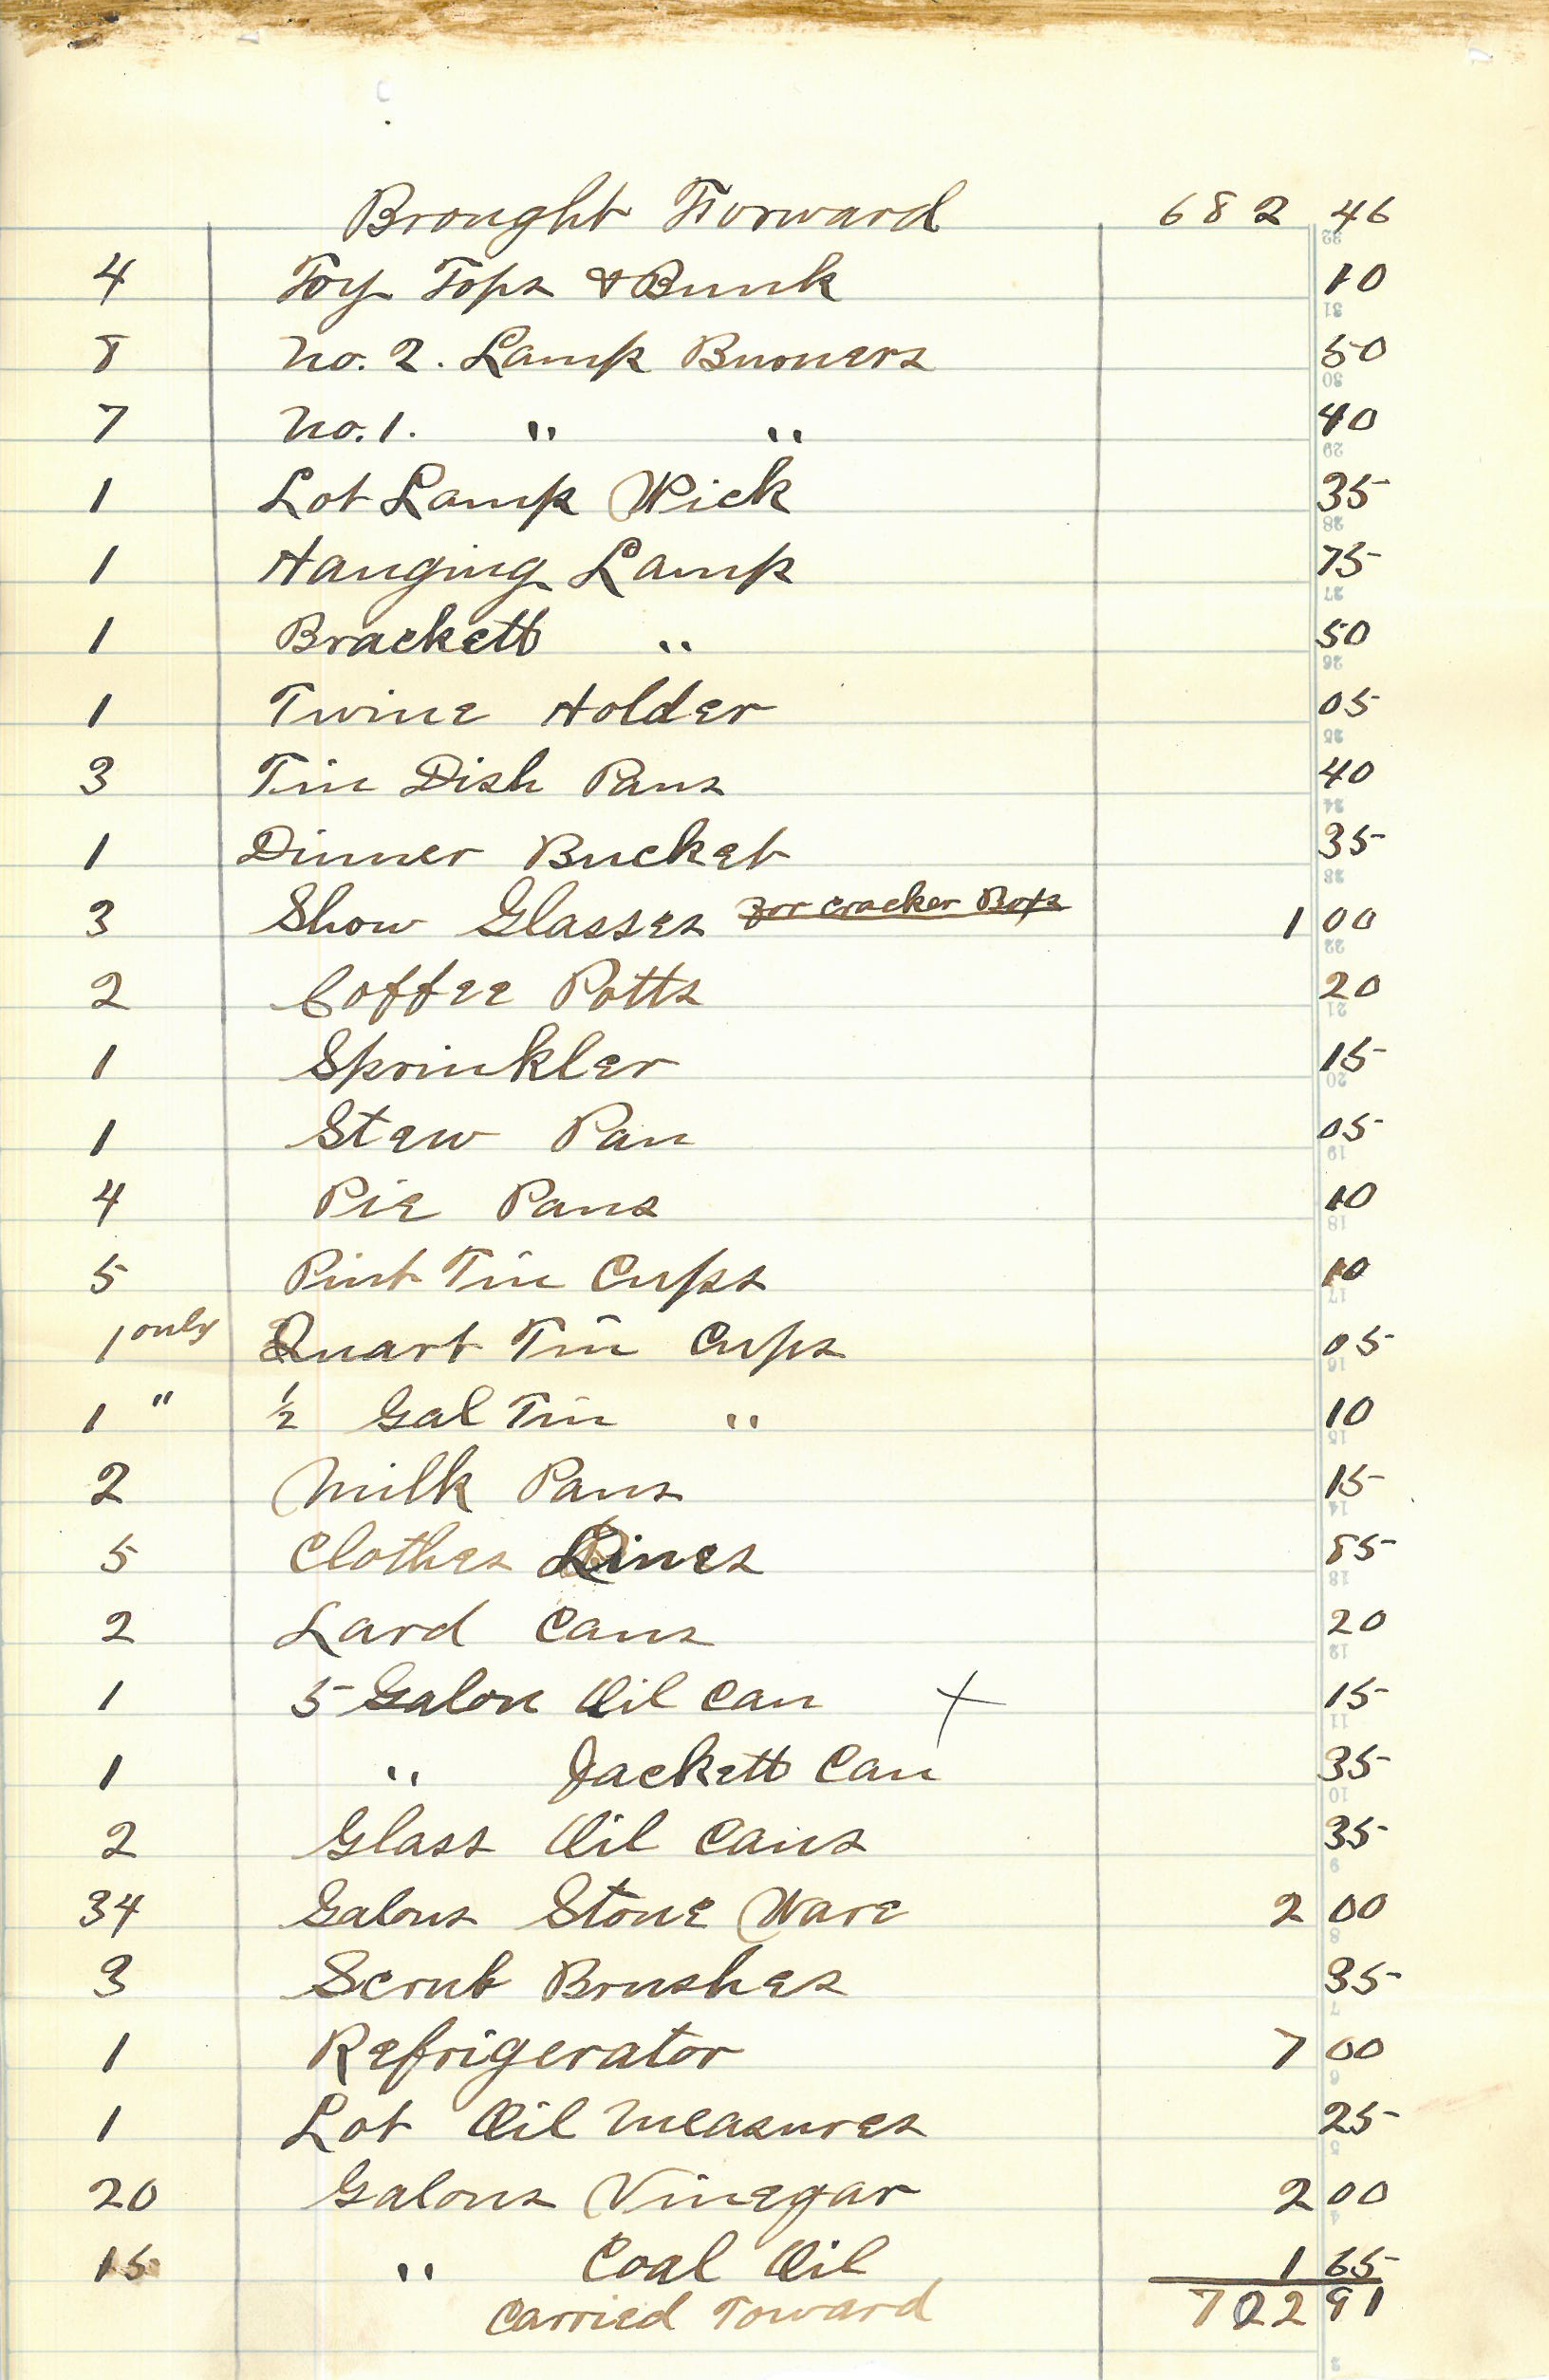 Brought Forward 682 46
4 Toy Tops & Bunk 10
8 No. 2. Lamp Burners 50
7 No. 1. " " 40
1 Lot Lamp Wick 35
1 Hanging Lamp 75
1 Brackett " 50
1 Twine Holder 05
3 Tin Dish Pans 40
1 Dinner Bucket 35
3 Show Glasses For cracker Boxs 1 00
2 Coffee Potts 20
1 Sprinkler 15
1 Stew Pan 05
4 Pie Pans 10
5 Pint Tin Cups 10
1 only Quart Tin Cups 05
1 " ½ Gal Tin " 10
2 Milk Pans 15
5 Clothes Lines 85
2 Lard Cans 20
1 5 Galon Oil Can X 15
1 " Jackett Can 35
2 Glass Oil Cans 35
34 Galons Stone Ware 2 00
3 Scrub Brushes 35
1 Refrigerator 7 00
1 Lot Oil Measures 25
20 Galons Vinegar 2 00
15 " Coal Oil 1 65
Carried Toward 702 91